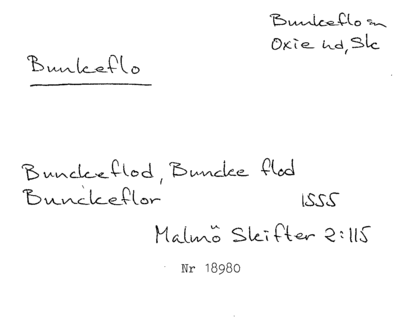 Bunkeflo sn
Oxie hd, Sk
Bunkeflo
Bunckeflod, Buncke flod
Bunckeflor 1555
Malmö Skifter 2:115
Nr 18980